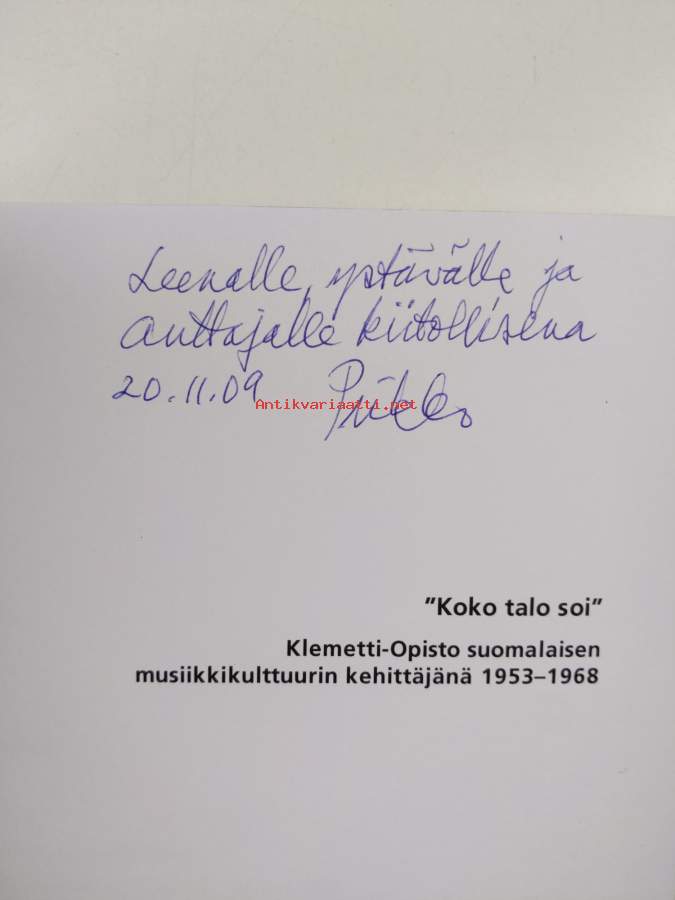 Leenalle, ystävälle ja
auttajalle kiitollisena
20.11.09 Pirkko
Antikvariaatti.net
"Koko talo soi"
Klemetti-Opisto suomalaisen
musiikkikulttuurin kehittäjänä 1953–1968